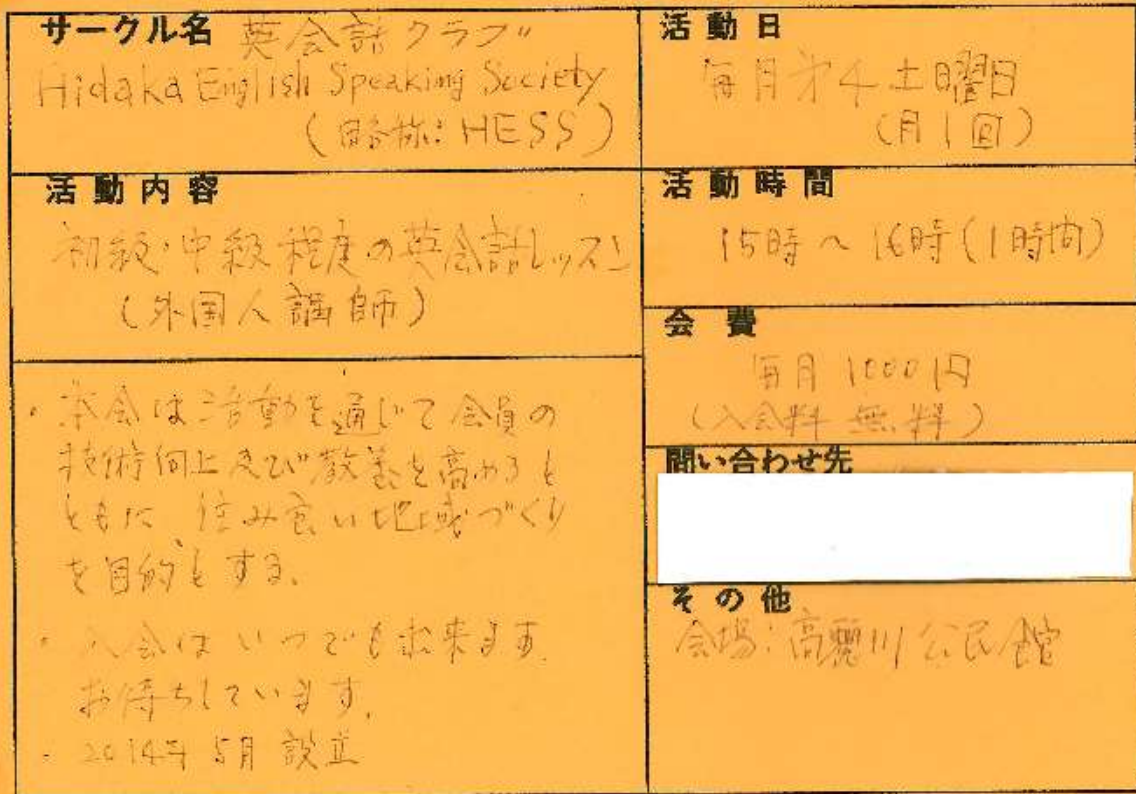 サークル名 英会話クラブ
Hidaka English Speaking Society
(略称:HESS)
活動内容
初級・中級程度の英会話レッスン
(外国人講師)
・本会は活動を通じて会員の
技術向上及び教養を高めると
ともに、住み良い地域づくり
を目的とする。
・入会はいつでも出来ます。
お待ちしています。
・2014年5月設立
活動日
毎月第4土曜日
(月1回)
活動時間
15時〜16時(1時間)
会費
毎月1000円
(入会料 無料)
問い合わせ先
その他
会場:高麗川公民館